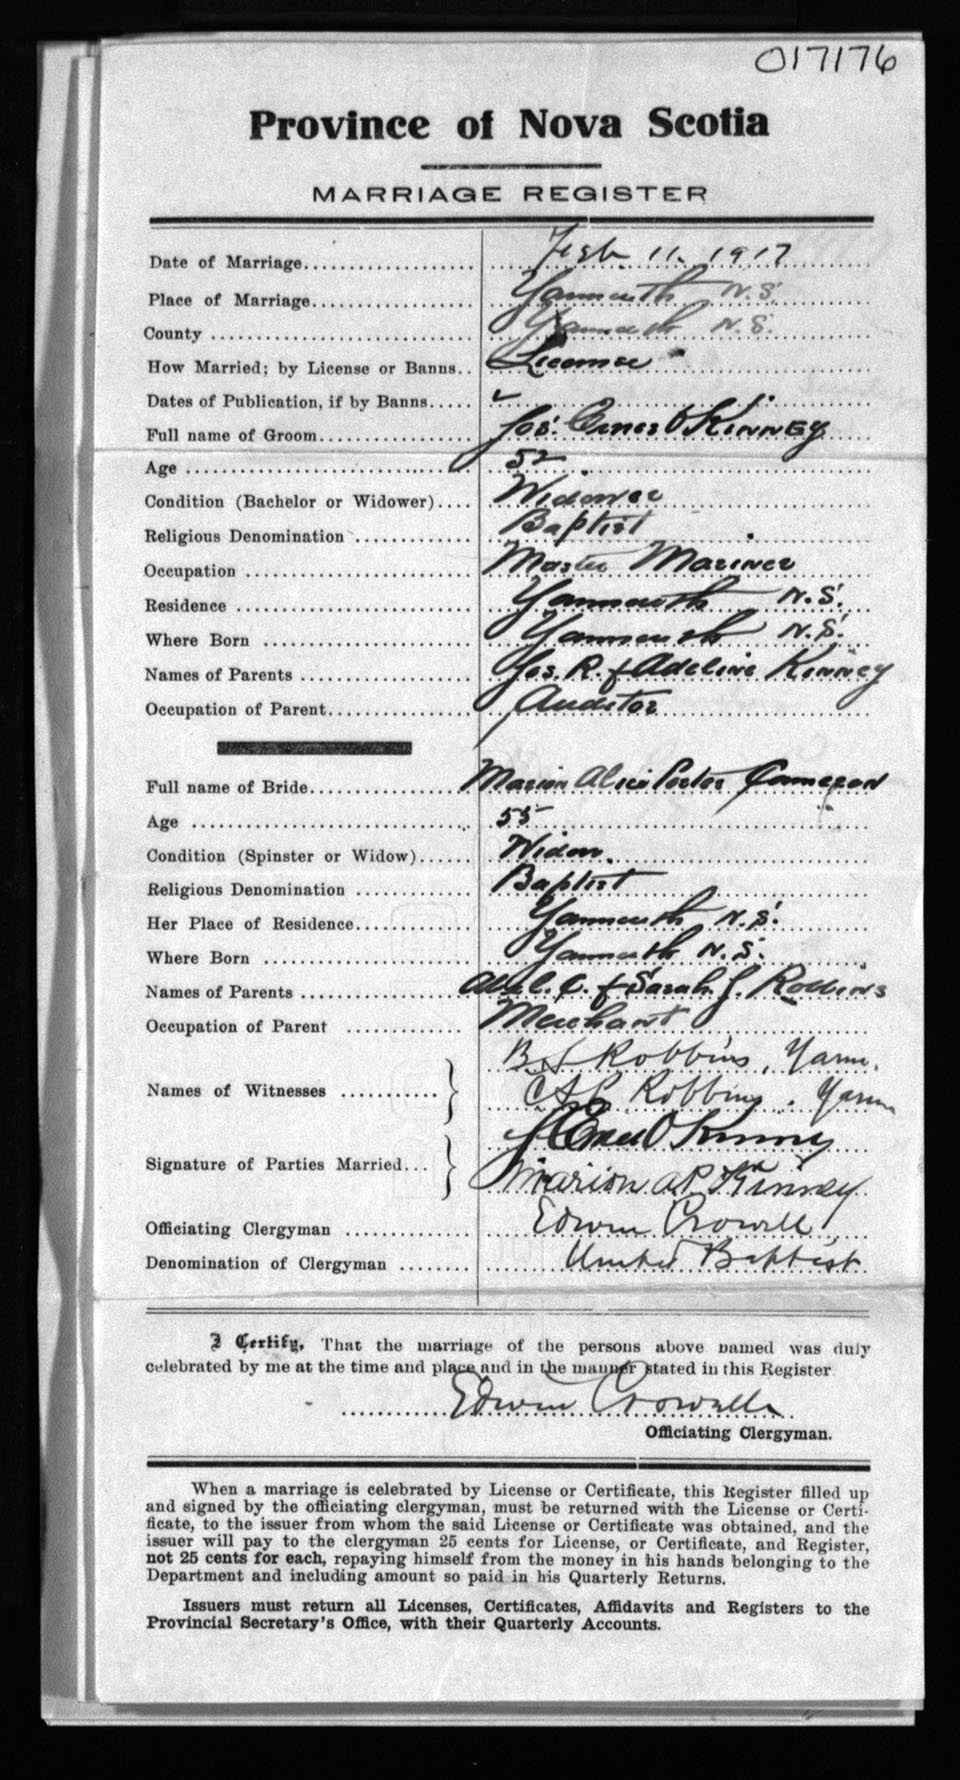 017176
Province of Nova Scotia
MARRIAGE REGISTER
Date of Marriage Feb. 11. 1917
Place of Marriage Yarmouth N.S.
County Yarmouth N.S.
How Married; by License or Banns License
Dates of Publication, if by Banns
Full name of Groom Jos. Kinney
Age 52
Condition (Bachelor or Widower) Widower
Religious Denomination Baptist
Occupation Master Mariner
Residence Yarmouth N.S.
Where Born Yarmouth N.S.
Names of Parents Jos. R. & Adeline Kinney
Occupation of Parent Auditor
Full name of Bride Marion Alice Porter Cameron
Age 55
Condition (Spinster or Widow) Widow.
Religious Denomination Baptist
Her Place of Residence Yarmouth N.S.
Where Born Yarmouth N.S.
Names of Parents C. & Sarah J. Robbins
Occupation of Parent Merchant
Names of Witnesses Robbins, Yarm.
Robbins. Yarm
Signature of Parties Married Kinney
Marion A P Kinney
Officiating Clergyman Edwin Crowell
Denomination of Clergyman United Baptist
I Certify, That the marriage of the persons above named was duly
celebrated by me at the time and place and in the manner stated in this Register
Edwin Crowell
Officiating Clergyman.
When a marriage is celebrated by License or Certificate, this Register filled up
and signed by the officiating clergyman, must be returned with the License or Certi-
ficate, to the issuer from whom the said License or Certificate was obtained, and the
issuer will pay to the clergyman 25 cents for License, or Certificate, and Register,
not 25 cents for each, repaying himself from the money in his hands belonging to the
Department and including amount so paid in his Quarterly Returns.
Issuers must return all Licenses, Certificates, Affidavits and Registers to the
Provincial Secretary's Office, with their Quarterly Accounts.